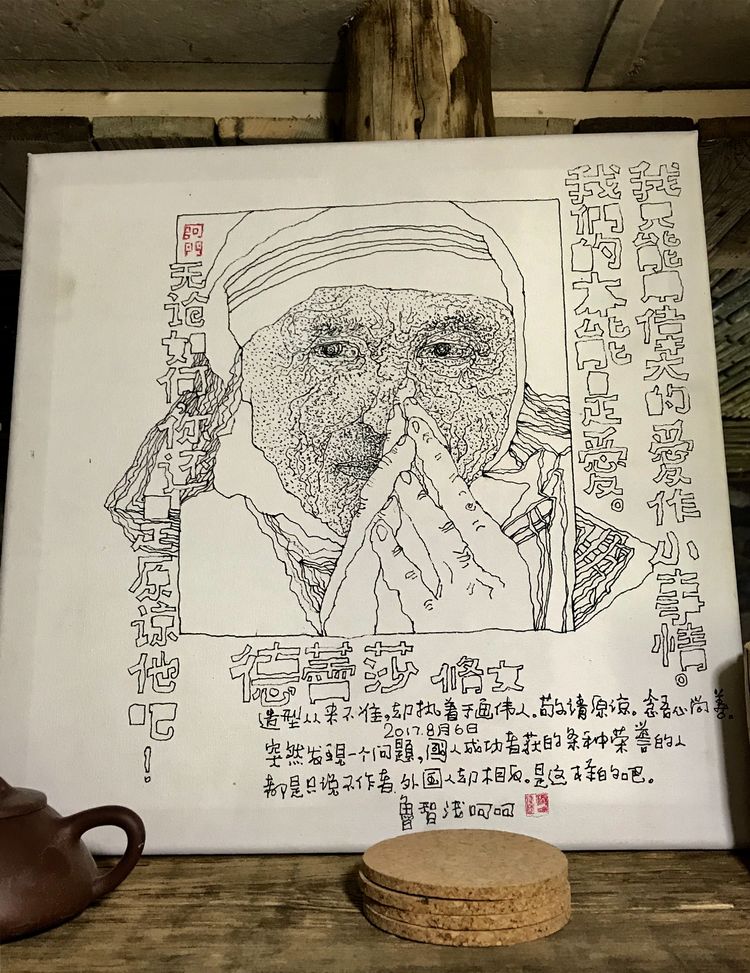 我只能用伟大的爱作小事情。
我們的能是愛。
无论如何你还是原谅他吧！
德蕾莎 修女
造型从来不准,却执着于画伟人。敬请原谅。念吾心尚善。
2017.8月6日
突然发現一个问題,國人成功者获的各种荣誉的人
都是只说不作者,外国人却相反。是这样的吧。
魯智浅呵呵